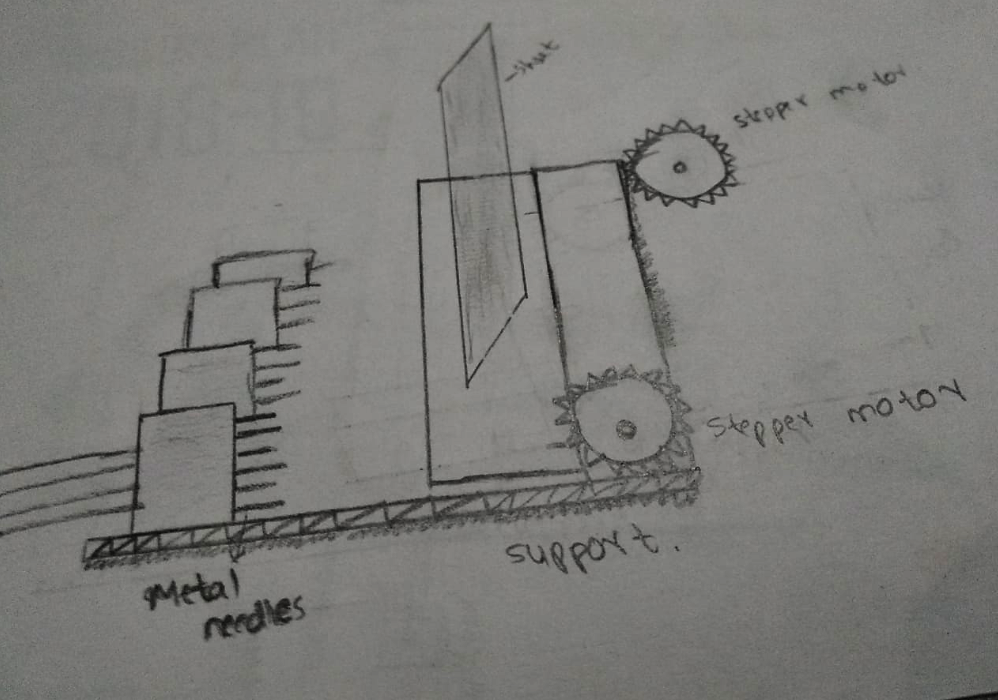 sheet
stepper motor
stepper motor
support.
Metal
needles